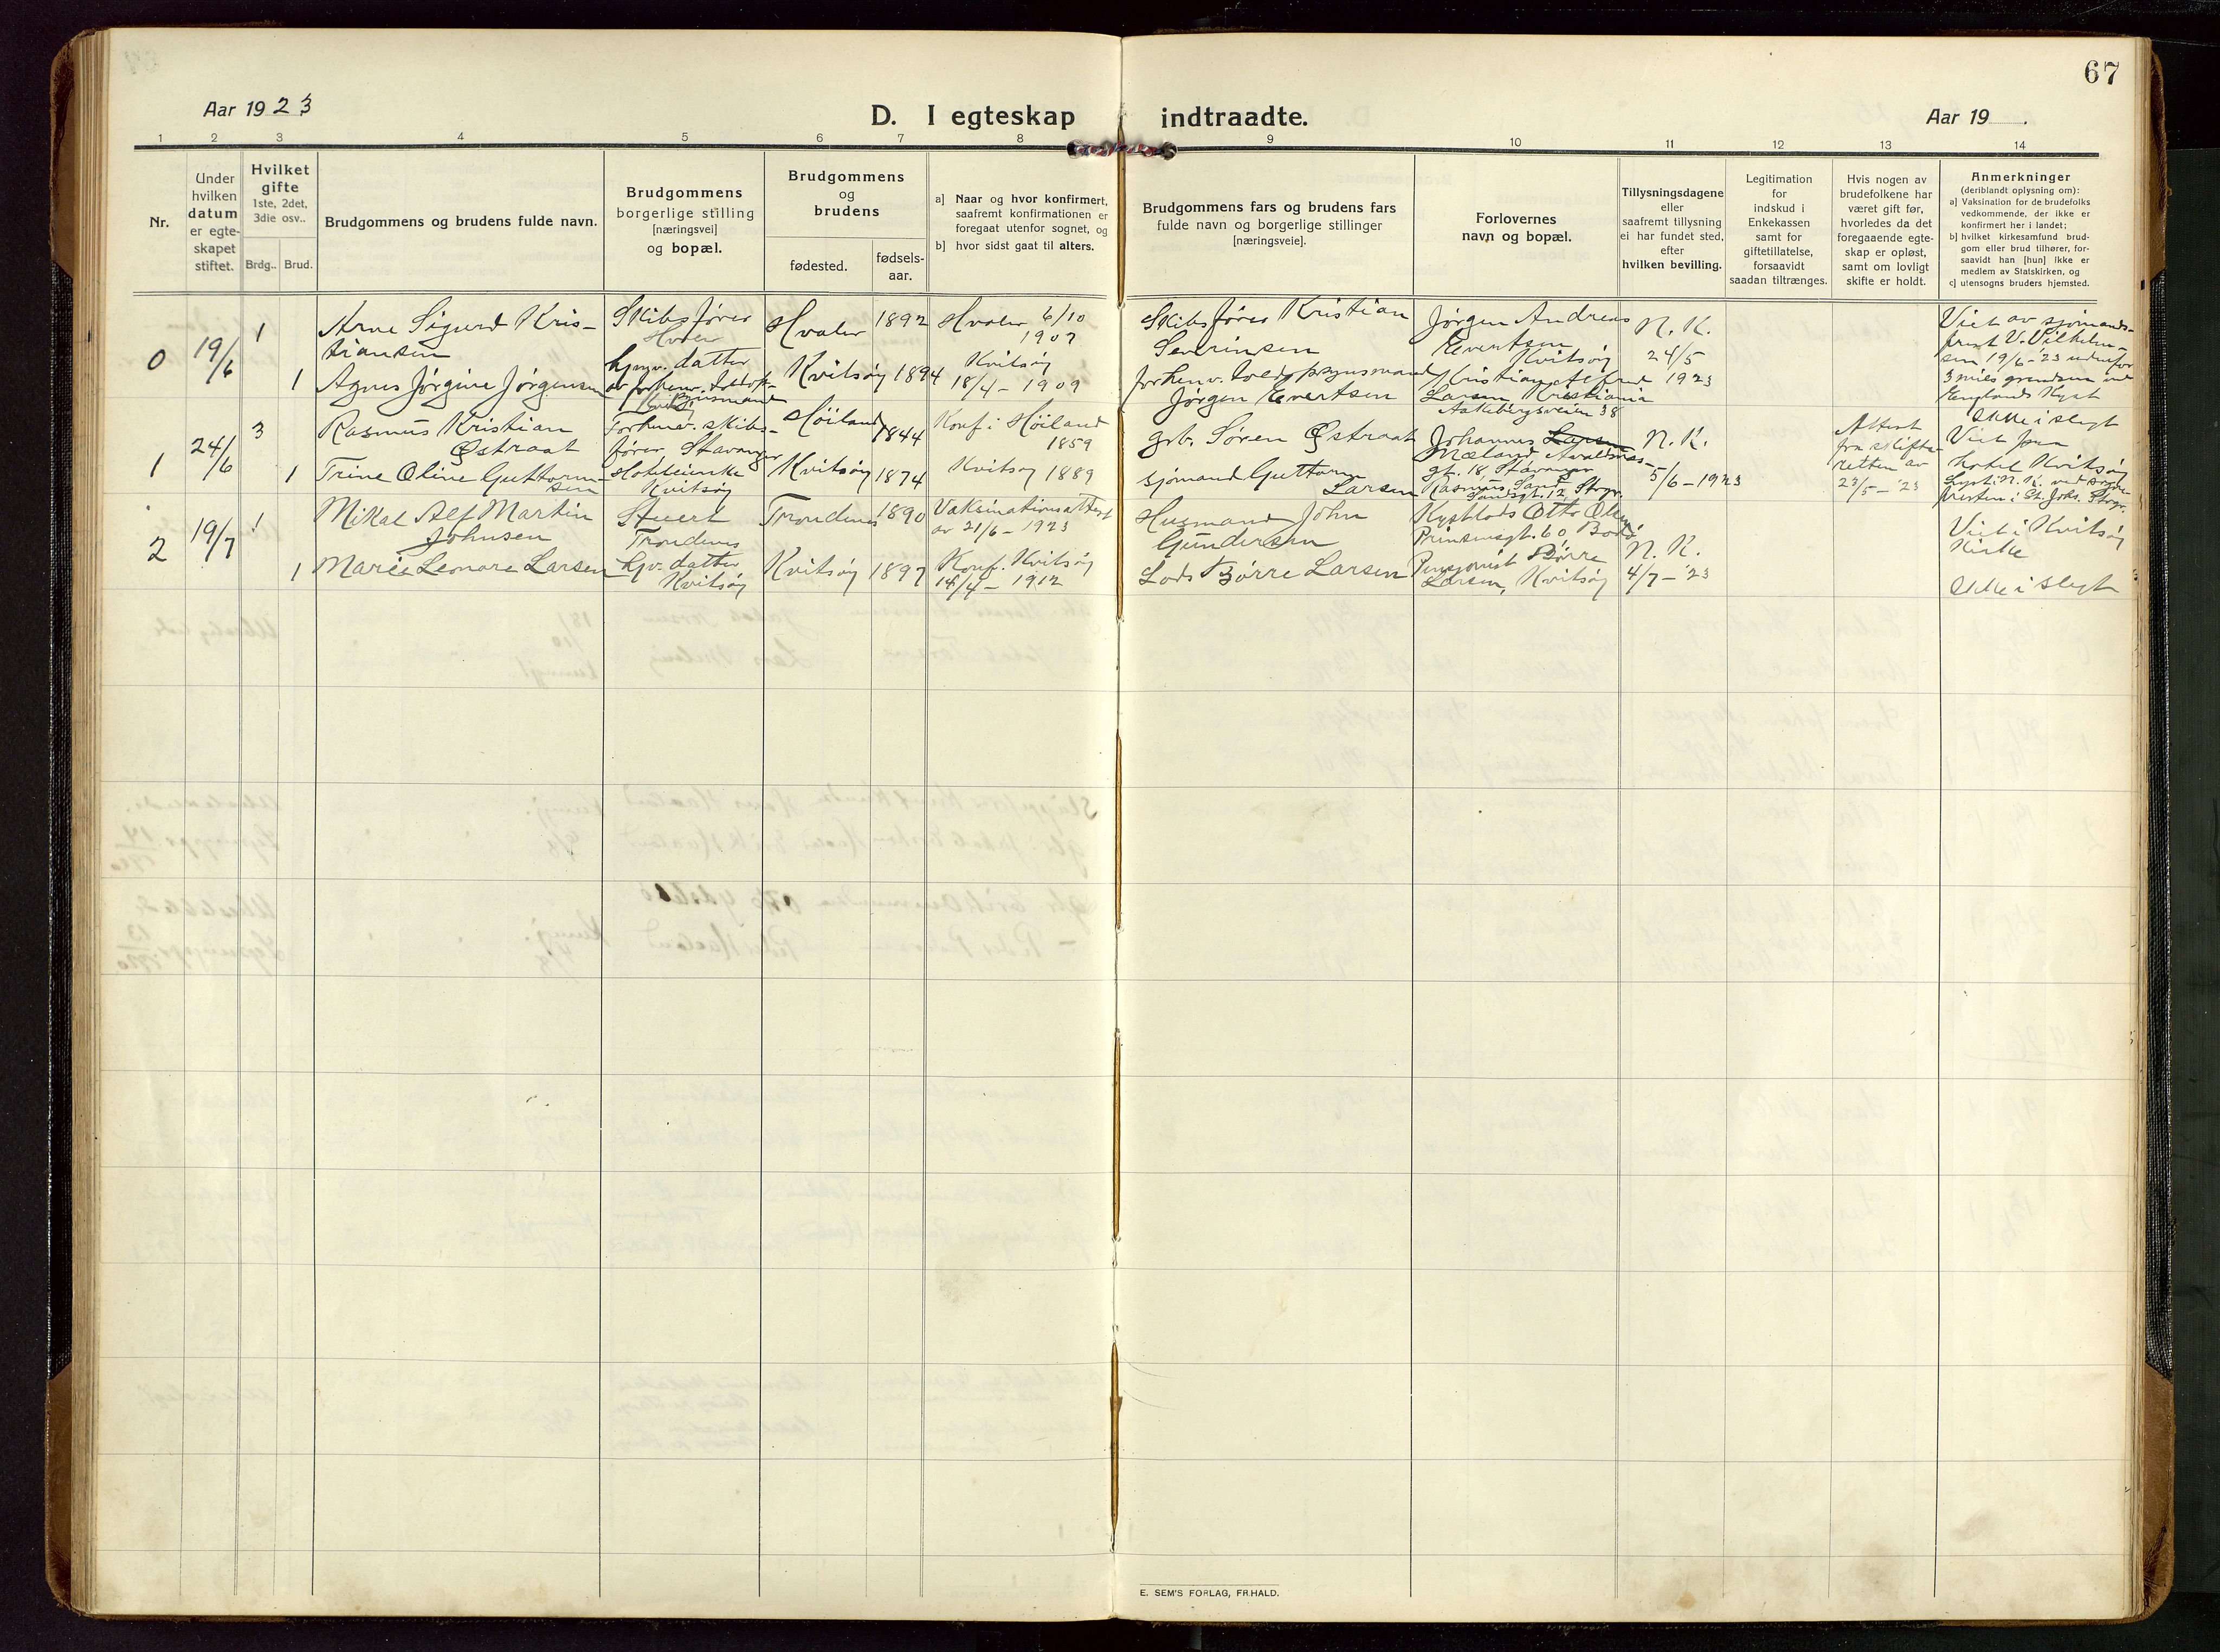 67
Aar 1923
D. I egteskap indtraadte.
Aar 19 .
1 2 3 4 5 6 7 8 9 10 11 12 13 14
Nr.
Under
hvilken
datum
er egte-
skapet
stiftet.
Hvilket
gifte
1ste, 2det,
3die osv..
Brdg.. Brud.
Brudgommens og brudens fulde navn.
Brudgommens
borgerlige stilling
[næringsvei]
og bopæl.
Brudgommens
og
brudens
fødested.
fødsels-
aar.
a] Naar og hvor konfirmert,
saafremt konfirmationen er
foregaat utenfor sognet, og
b] hvor sidst gaat til alters.
Brudgommens fars og brudens fars
fulde navn og borgerlige stillinger
[næringsveie].
Forlovernes
navn og bopæl.
Tillysningsdagene
eller
saafremt tillysning
ei har fundet sted,
efter
hvilken bevilling.
Legitimation
for
indskud i
Enkekassen
samt for
giftetillatelse,
forsaavidt
saadan tiltrænges.
Hvis nogen av
brudefolkene har
været gift før,
hvorledes da det
foregaaende egte-
skap er opløst,
samt om lovligt
skifte er holdt.
Anmerkninger
(deriblandt oplysning om):
a] Vaksination for de brudefolks
vedkommende, der ikke er
konfirmert her i landet;
b] hvilket kirkesamfund brud-
gom eller brud tilhører, for-
saavidt han [hun] ikke er
medlem av Statskirken, og
c] utensogns bruders hjemsted.
0
19/6
1
Arne Sigurd Kris-
tiansen
Skibsfører
Hvaler
1892
Hvaler 6/10
1907
Skibsfører Kristian
Severinsen
Jørgen Andreas
Evertsen
Kvitsøy
N. K.
24/5
1923
Viet av sjømands-
prest V. Vilhelm-
sen 19/6-'23 utenfor
3 miles grændsen ved
Englands Kyst
Ikke i slegt
1
Agnes Jørgine Jørgensen
hjemv. datter
av forhenv.
Kvitsøy 1894
Kvitsøy
18/4 - 1909
forhenv. toldopsynsmand
Jørgen Evertsen
Kristian Alfred
Larsen Kristiania
Aakebergsveien 38
1
24/6
3
Rasmus Kristian
Østraat
Forhenv. skibs-
fører, Stavanger
Høiland
1844
Konf i Høiland
1859
grb. Søren Østraat
Johannes Larsen
Mæland
gt. 18, Stavanger
N. K.
5/6 - 1923
Attest
fra skifte-
retten av
23/5 - '23
Viet paa
hotel Kvitsøy
1
Trine Oline Guttorm-
sen
Hotelenke
Kvitsøy
Kvitsøy
1874
Kvitsøy 1889
sjømand Guttorm
Larsen
Rasmus Sand
Sandsgt. 12, Stvgr.
2
19/7
1
Mikal Alf Martin
Johnsen
Stuert
Trondenes
Trondenes
1890
Vaksinationsattest
av 21/6 - 1923
Husmand John
Gundersen
Kystlods Otto Olsen
Prinsensgt. 60, Bodø
N. K.
4/7 - '23
Viet i Kvitsøy
Kirke
Ikke i slegt
1
Marie Leonore Larsen
hjv. datter
Kvitsøy
Kvitsøy
1897
Konf. Kvitsøy
14/4 - 1912
Lods Børre Larsen
Pensjonist Børre
Larsen, Kvitsøy
E. SEM'S FORLAG, FR.HALD.